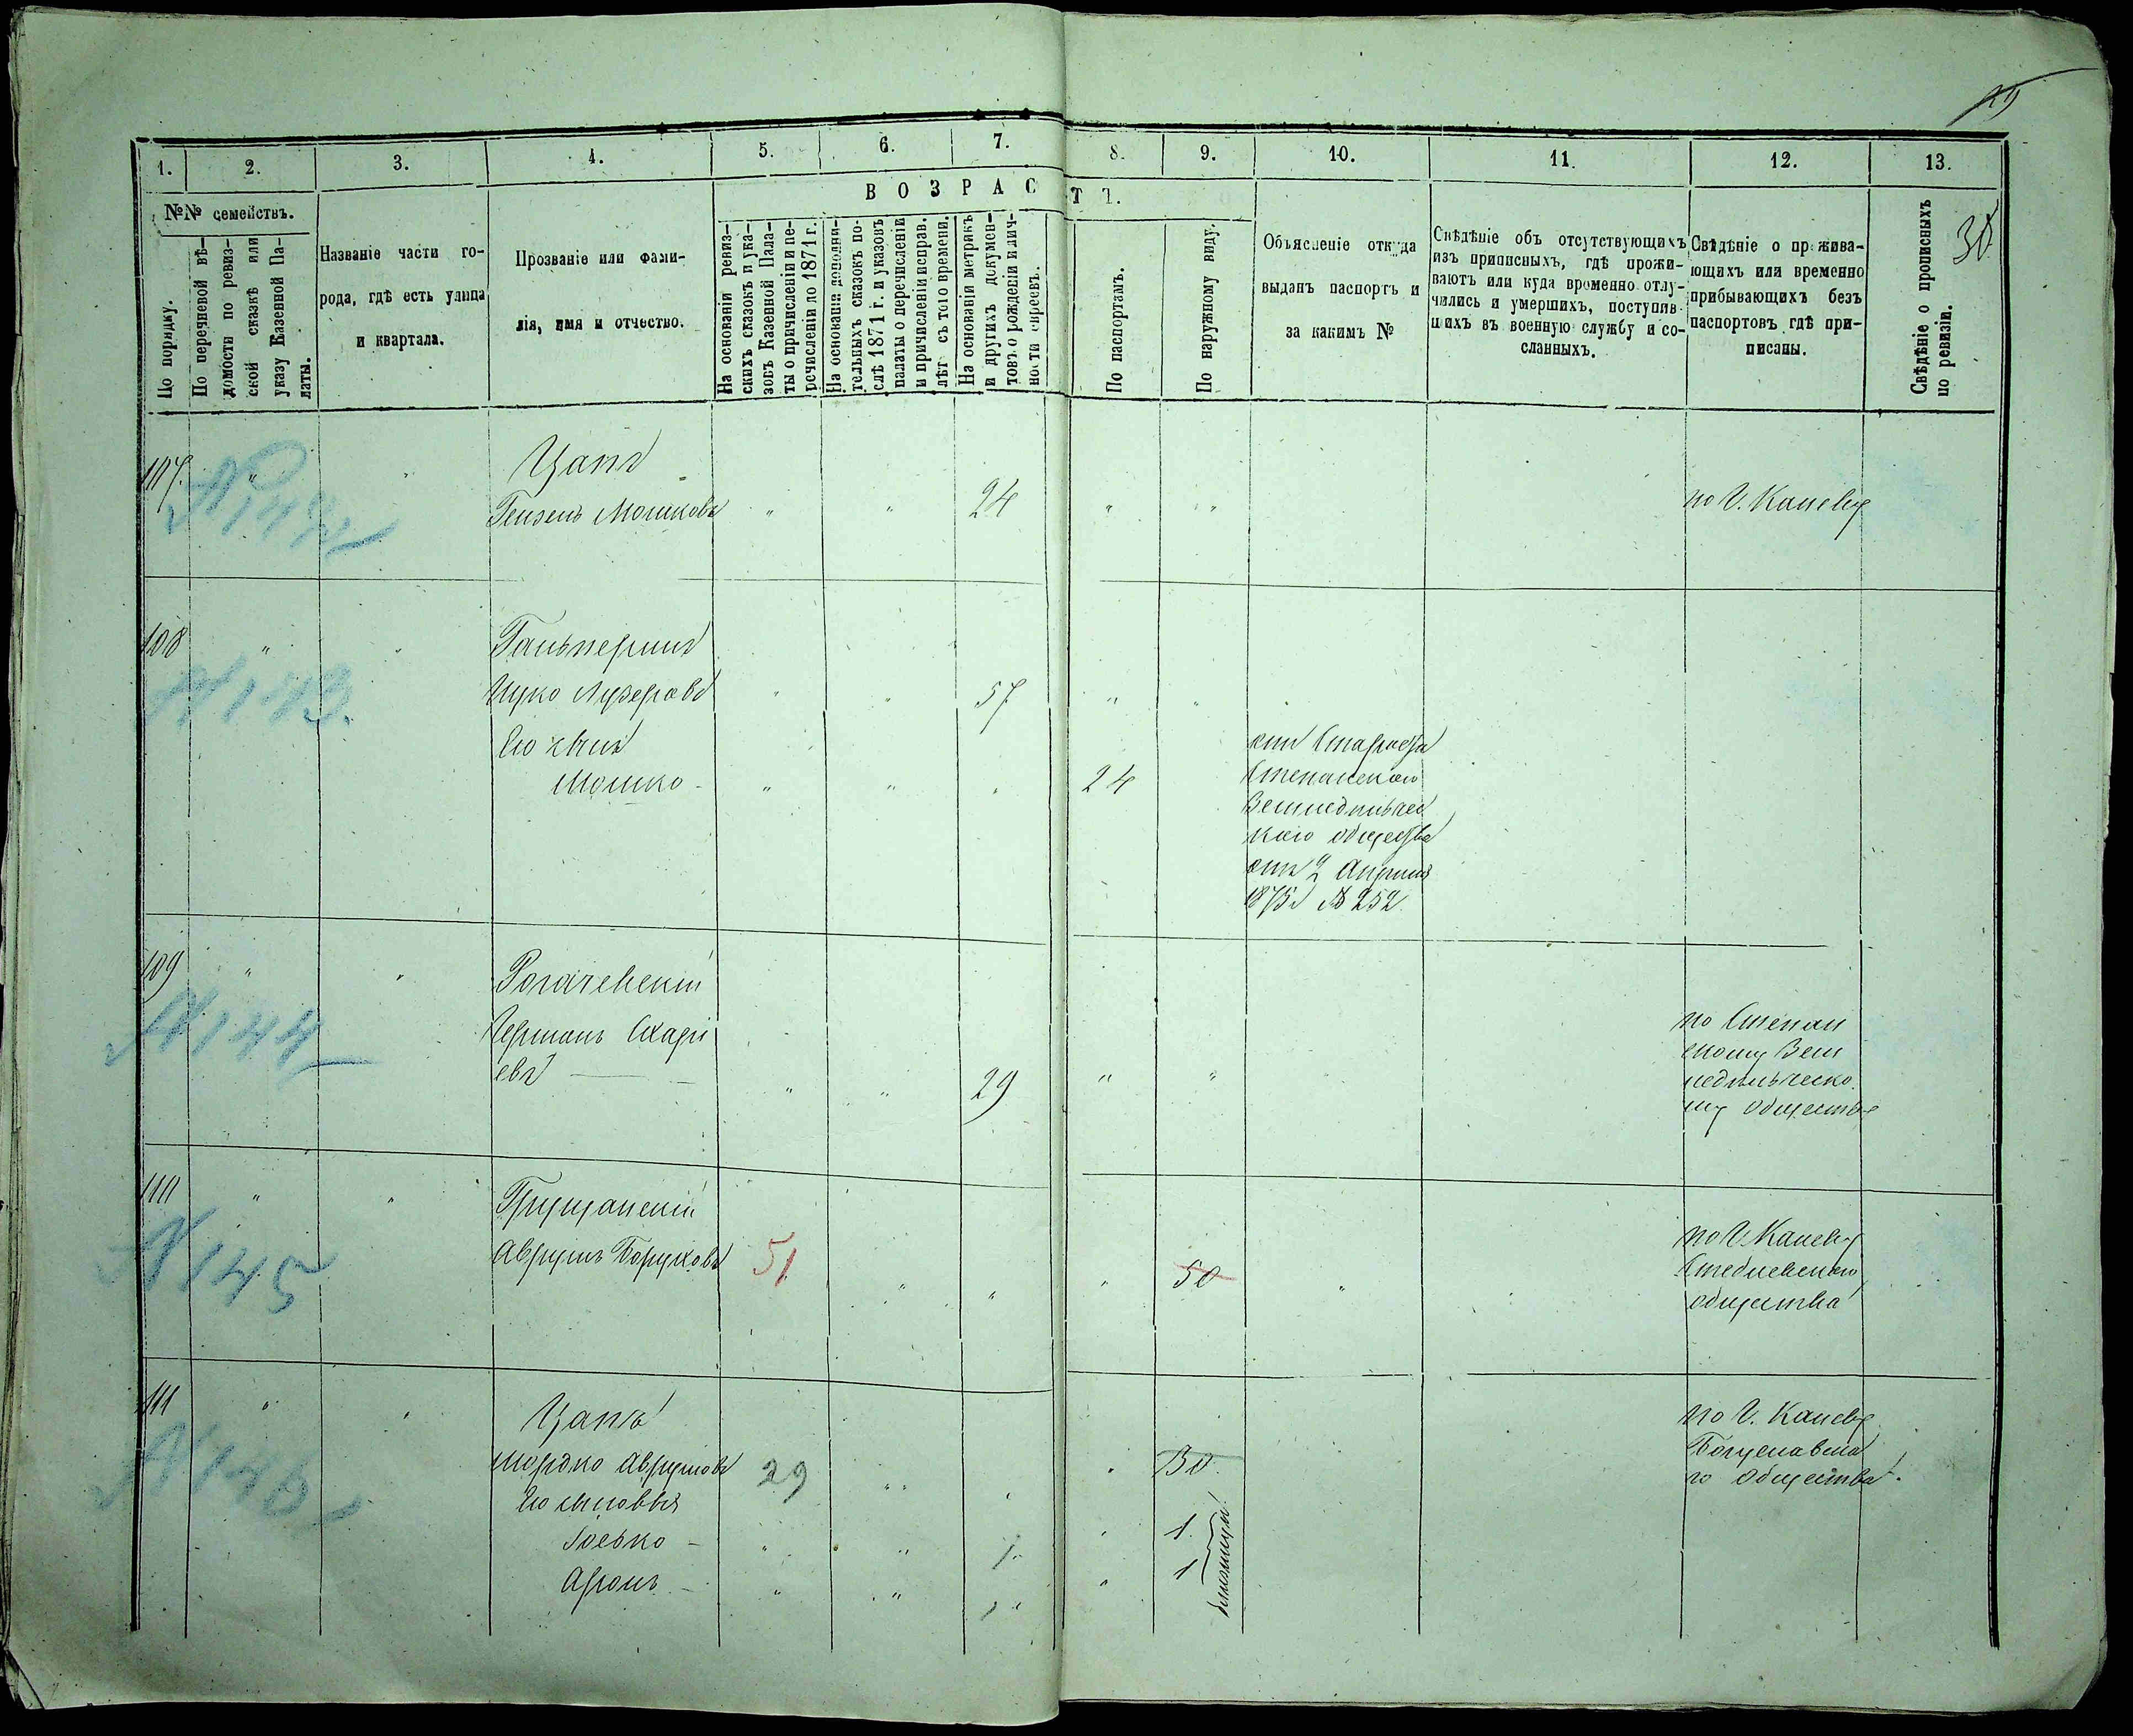 29
30
1. 2. 3. 4. 5. 6. 7. 8. 9. 10. 11. 12. 13.
№№ семействъ.
В О З Р А С Т Ъ.
По порядку.
По перечневой вѣ-
домости по ревиз-
ской сказкѣ или
указу Казенной Па-
латы.
Названіе части го-
рода, гдѣ есть улица
и квартала.
Прозваніе или фами-
лія, имя и отчество.
На основаніи ревиз-
скихъ сказокъ и ука-
зовъ Казенной Пала-
ты о причисленіи и пе-
речисленіи до 1871 г.
На основаніи дополни-
тельныхъ сказокъ по-
слѣ 1871 г. и указовъ
палаты о перечисленіи
и причисленіи неправ.
лѣт съ того времени.
На основаніи метрикъ
и другихъ докумен-
товъ о рожденіи и лич-
ности евреевъ.
По паспортамъ.
По наружному виду.
Объясненіе откуда
выданъ паспортъ и
за какимъ №
Свѣдѣніе объ отсутствующихъ
изъ приписныхъ, гдѣ прожи-
ваютъ или куда временно отлу-
чились и умершихъ, поступив-
шихъ въ военную службу и со-
сланныхъ.
Свѣдѣніе о прожива-
ющихъ или временно
прибывающихъ безъ
паспортовъ гдѣ при-
писаны.
Свѣдѣніе о прописныхъ
по ревизіи.
107. " " Цапъ
Мошковъ " " 24 " " по Г. Каневу
№ 142
108 " " Гальперинъ
Ицко Лузеровъ " " 57 " "
№ 143.
Его сынъ
Мошко - " " " 24
отъ Старосты
Степанскаго
Земледѣльчес
каго общества
отъ 2 Апрѣля
1875 № 252.
109 " " Рогачевскій
Германъ
евъ " " 29 " "
№ 144
по Степан
скому Зем
ледѣльческо
му обществу
110 " " Грущанскій
Аврумъ Боруховъ 51 " " " 50 "
№ 145
по Г. Каневу
Стеблевскаго
общества
111 " " Цапъ
Мордко Аврумовъ 29 " " " 30.
№ 146
по Г. Каневу
Богуславска
го общества.
Его сыновья
Іосько - " " 1 " 1.
Аронъ - " " 1 " 1
близнецы